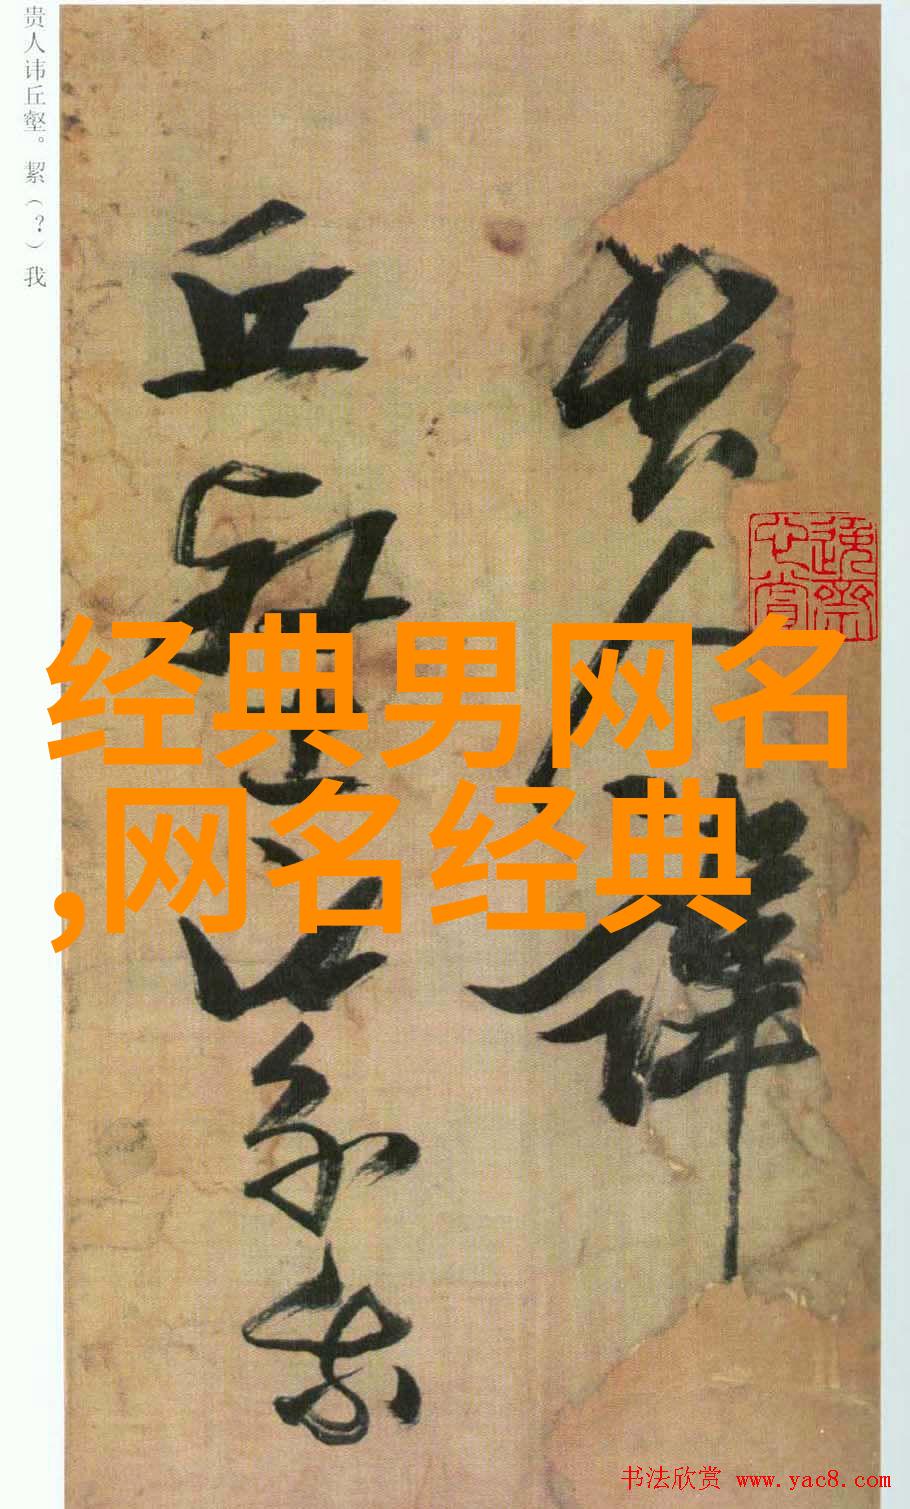 贵人讳丘壑。絜（？）我
贵人讳
丘壑絜我
经典男网名
,网名经典
书法欣赏 www.yac8.com